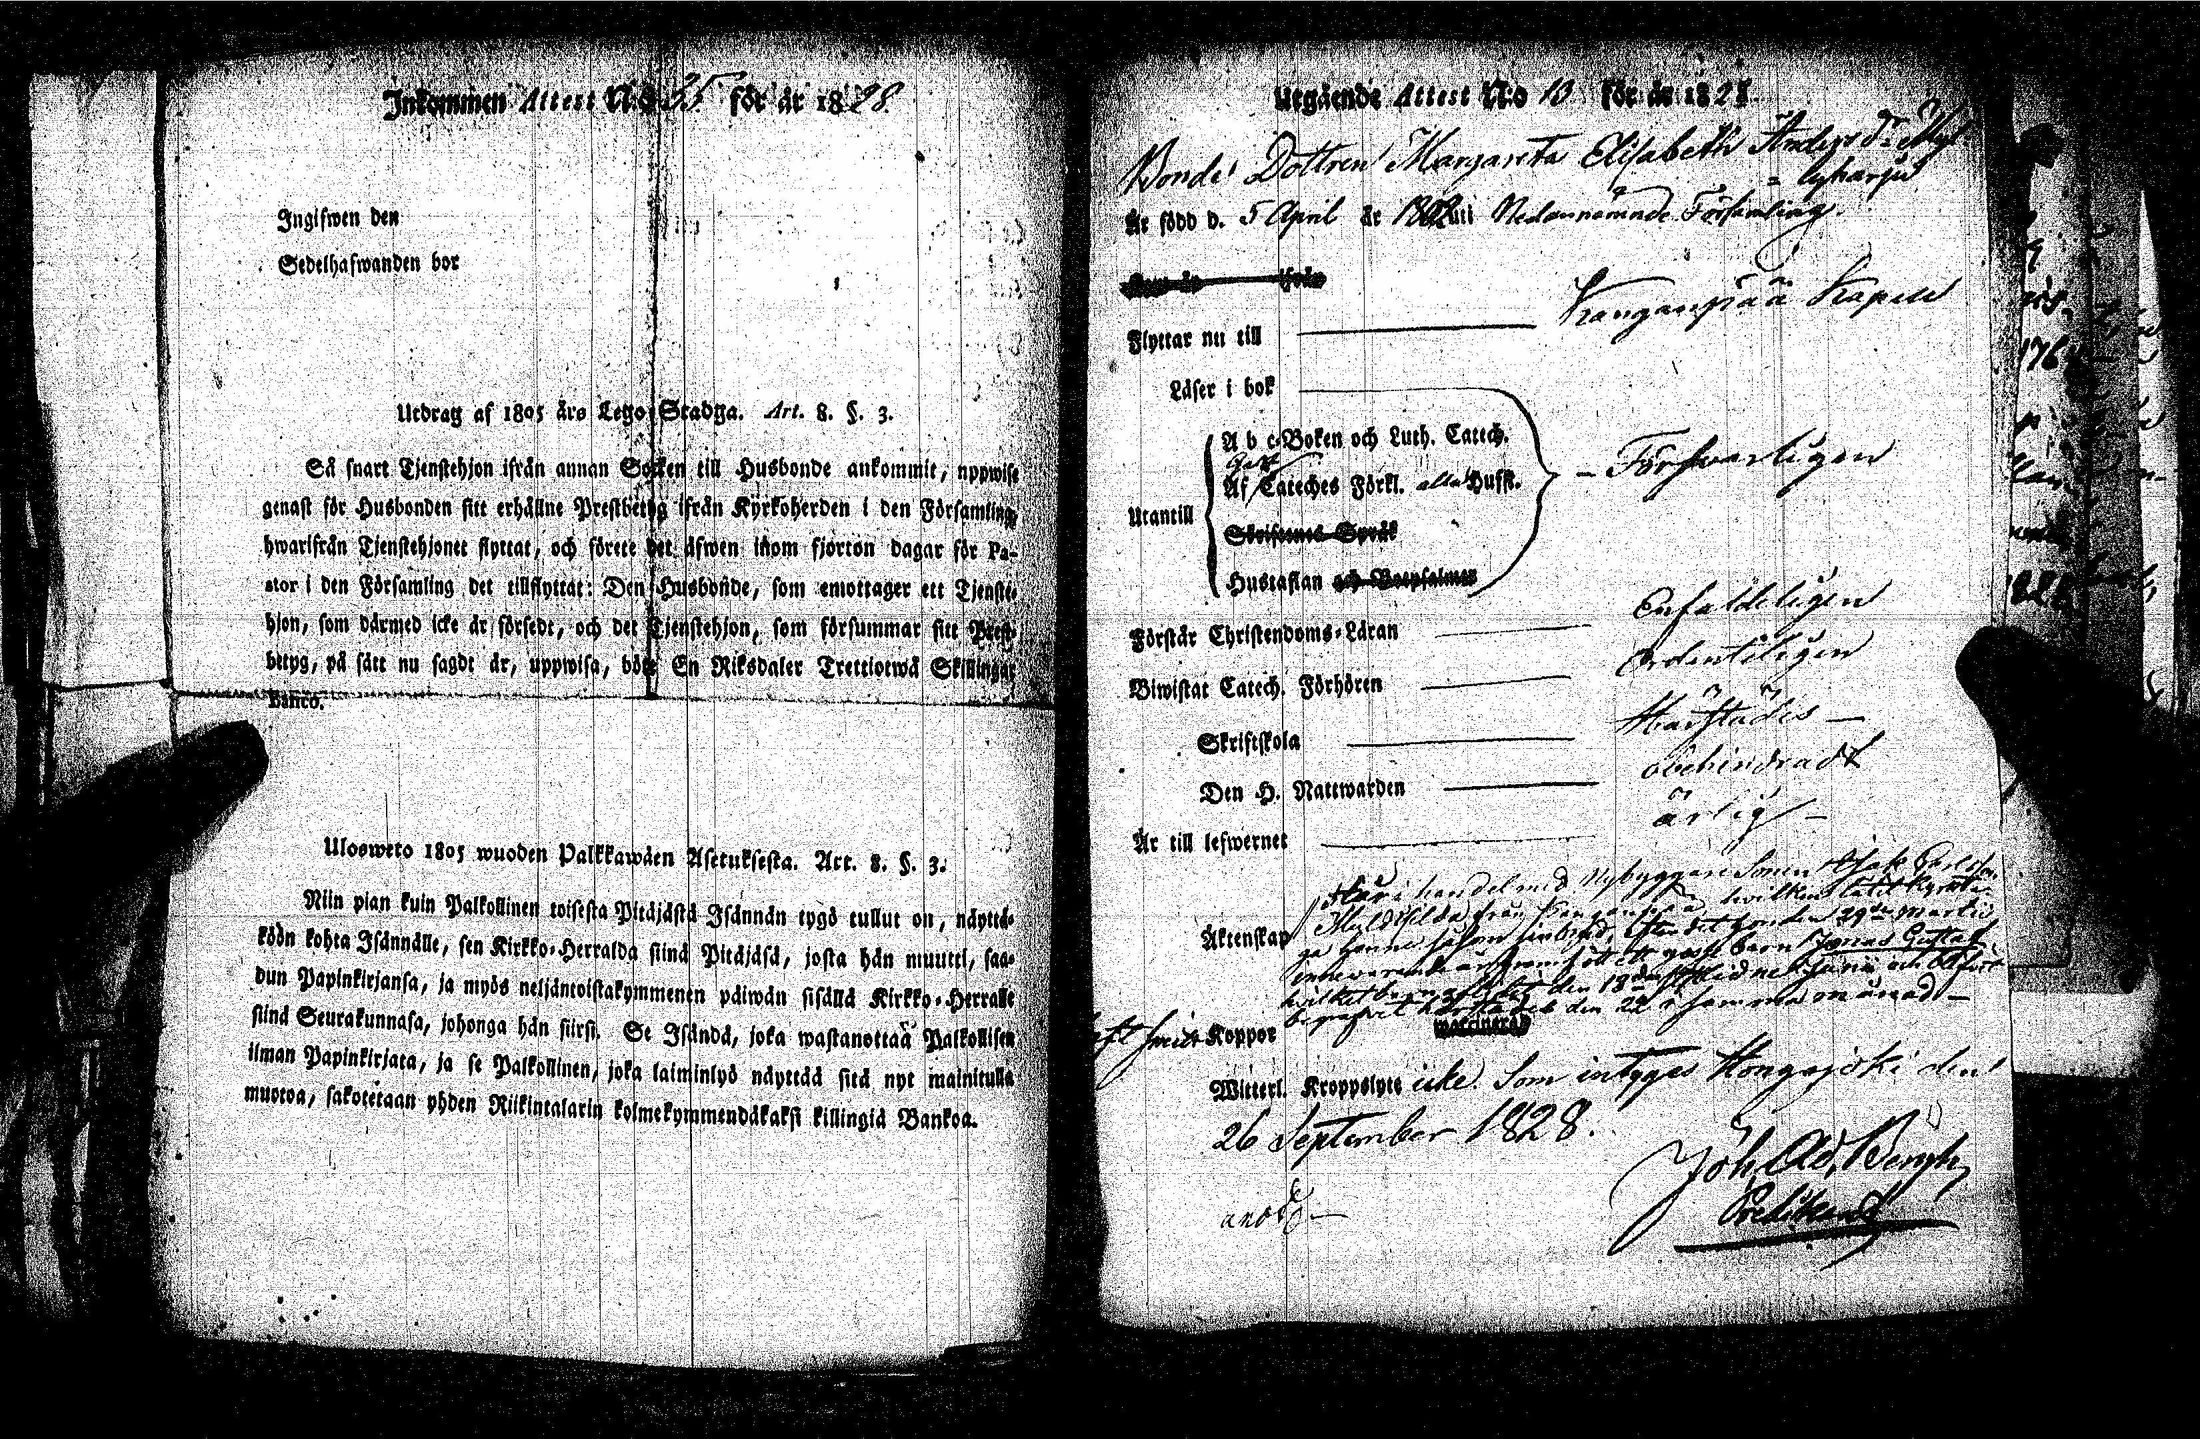 Inkommen Attest N:o 35 för år 1828
Ingifwen den
Sedelhafwanden bor
Utdrag af 1805 års Lego Stadga. Art. 8. §. 3.
Så snart Tjenstehjon ifrån annan Socken till Husbonde ankommit, uppwise
genast för Husbonden sitt erhållne Prestbetyg ifrån Kyrkoherden i den Församling,
hwarifrån Tjenstehjonet flyttat, och förete det äfwen inom fjorton dagar för Pa-
stor i den Församling det tillflyttat: Den Husbonde, som emottager ett Tjenste-
hjon, som därmed icke är försedt, och det Tjenstehjon, som försummar sitt Prest-
betyg, på sätt nu sagdt är, uppwisa, böte En Riksdaler Trettiotwå Skillingar
Banco.
Ulosweto 1805 wuoden Palkkawäen Asetuksesta. Art. 8. §. 3.
Niin pian kuin Palkollinen toisesta Pitäjästä Isännän tygö tullut on, näyttä-
köön kohta Isännälle, sen Kirkko-Herralda siinä Pitäjäsä, josta hän muutti, saa-
dun Papinkirjansa, ja myös neljäntoistakymmenen päiwän sisällä Kirkko-Herralle
siinä Seurakunnasa, johonga hän siirsi. Se Isändä, joka wastanottaa Palkollisen
ilman Papinkirjata, ja se Palkollinen, joka laiminlyö näyttää sitä nyt mainitulla
muotoa, sakotetaan yhden Riikintalarin kolmekymmendäkaksi killingiä Bankoa.
Utgående Attest N:o 10 för år 1828.
Bonde Dottren Margareta Elisabeth Andersdr Myl-
= lyharju
Är född d. 5 April år 1802 uti Nedannämnde Församling.
Flyttar nu till Kanganpää Kapell
Läser i bok
A b c-Boken och Luth. Catech.
Af Cateches Förkl. alla Hufst. - Försvarligen
Utantill
Skriftenes Språk
Hustaflan och Botpsalmer
Förstår Christendoms-Läran Enfaldeligen
Biwistat Catech. Förhören Ordenteligen
Skriftskola Härstädes -
Den H. Nattwarden obehindradt
Är till lefwernet ärlig -
Här i handel med Nybyggare Sonen
från Kanganpää, hwilken låtit
Äktenskap henne efter det hon den 29de Martii
innewarande år framfödt ett gosse barn Jonas Gustaf,
hvilket barn den 18de Junii och blifvit
begrafvet den 22 i samma månad -
haft Koppor vaccinerad
Witterl. Kroppslyte icke. Som intygas Hongajoki den
26 September 1828.
Joh. Ad. Bergh,
Predikant